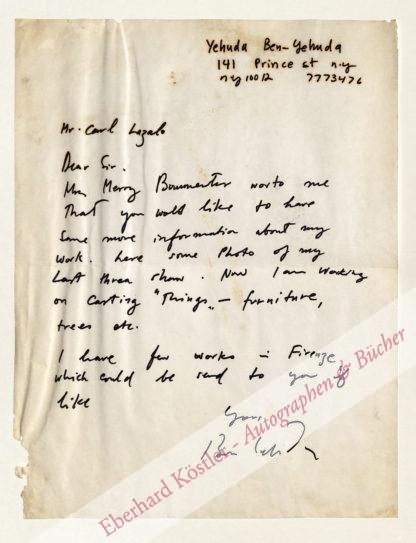 Yehuda Ben-Yehuda
141 Prince st n.y
ny 10012 7773476
Mr. Carl Lozalo
Dear Sir.
Mrs Merry Boumenter worto me
That you wold like to have
Some more information about my
work. here some Photo of my
Last three show. Now I am working
on Carting "Things" – furniture,
trees etc.
I have few works in Firenze
which could be send to you if
like
Yours
Eberhard Köstler - Autographen & Bücher